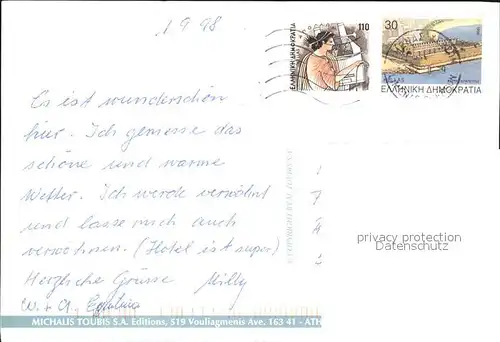 1 9 98
110
ΕΛΛΗΝΙΚΗ ΔΗΜΟΚΡΑΤΙΑ
30
ΕΛΛΗΝΙΚΗ ΔΗΜΟΚΡΑΤΙΑ
Es ist wunderschön
hier. Ich geniesse das
schöne und warme
Wetter. Ich werde verwöhnt
und lasse mich auch
verwöhnen. (Hotel ist super)
Herzliche Grüsse Milly
W. + A.
privacy protection
Datenschutz
MICHALIS TOUBIS S.A. Editions, 519 Vouliagmenis Ave. 163 41 - ATH